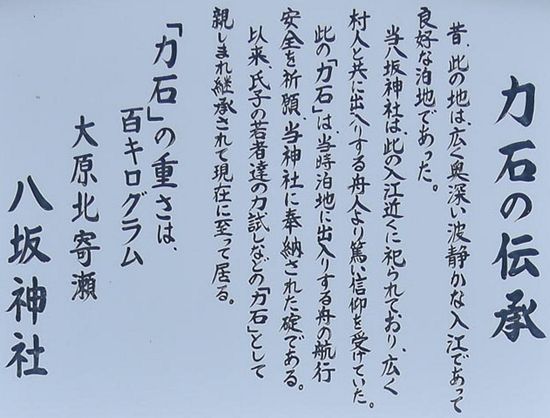 力石の伝承
昔、此の地は、広く奥深い波静かな入江であって
良好な泊地であった。
当八坂神社は、此の入江近くに祀られており、広く
村人と共に出入りする舟人より篤い信仰を受けていた。
此の「力石」は、当時泊地に出入りする舟の航行
安全を祈願、当神社に奉納された碇である。
以来、氏子の若者達の力試しなどの「力石」として
親しまれ継承されて現在に至って居る。
「力石」の重さは、
百キログラム
大原北寄瀬
八坂神社